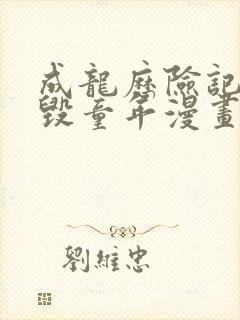 成龍歷險記
毀童年漫畫
劉維忠